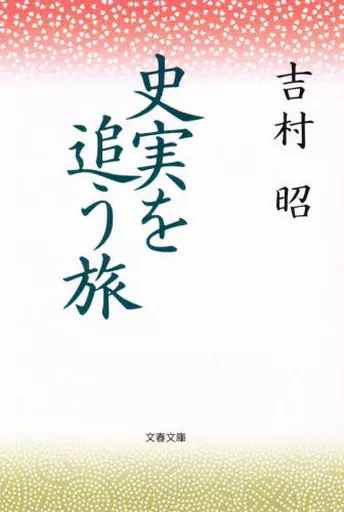 吉村 昭
史実を
追う旅
文春文庫